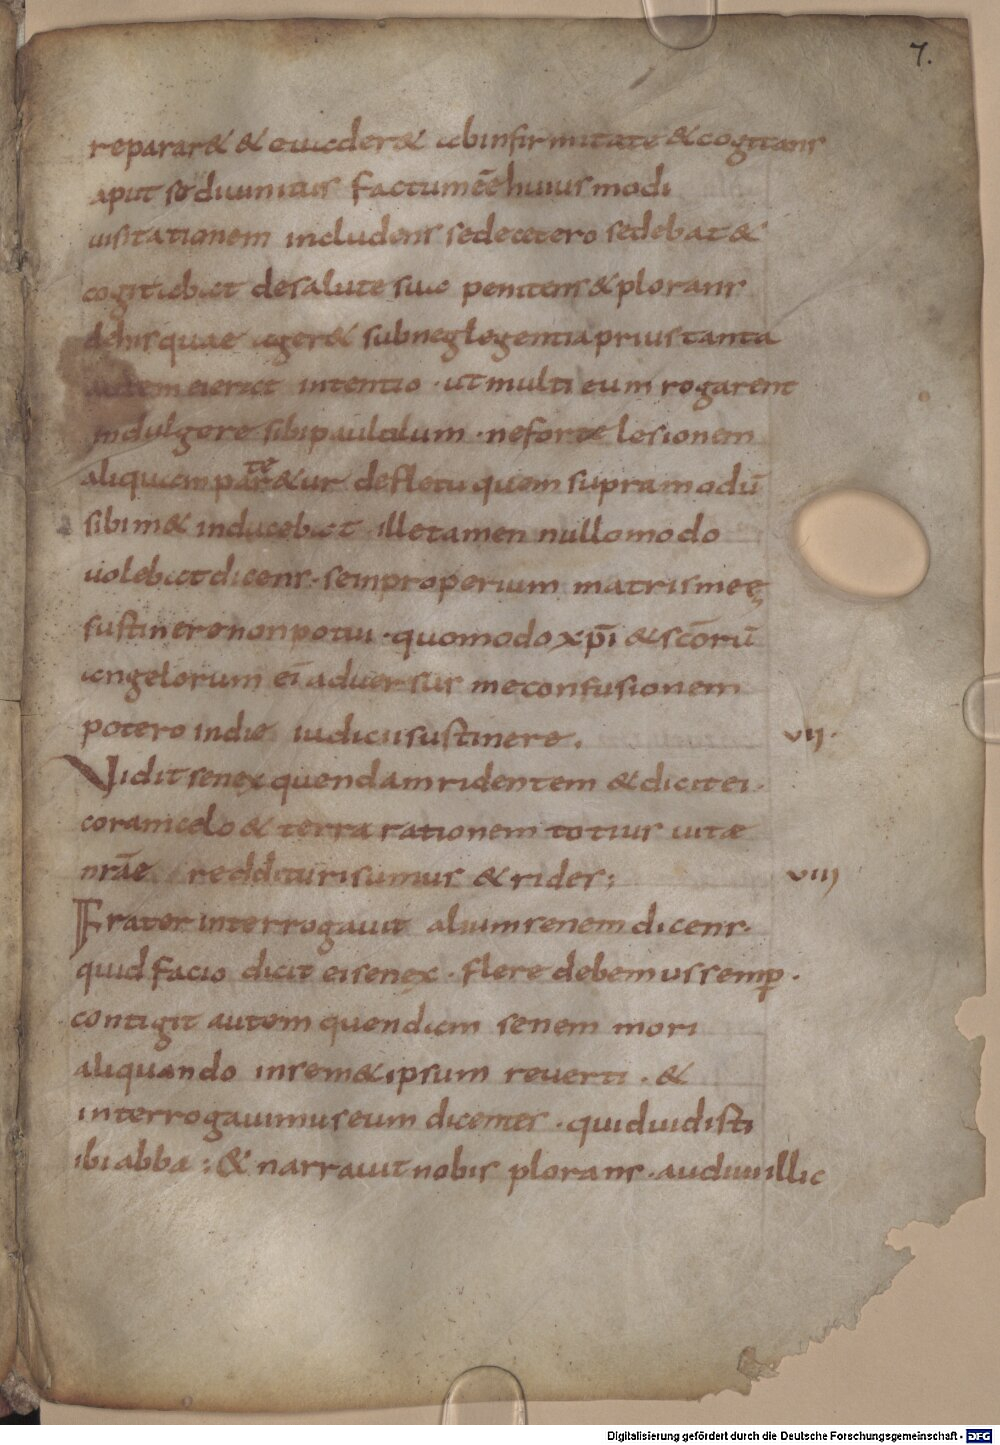 7.
reparar& & euader& ab infirmitate & cogitans
aput se diuinitus factum ēē huius modi
uisitationem includens se decetero sedebat &
cogitabat de salute sua penitens & plorans
de his quae ager& sub neglegentia prius tanta
autem ei erat intentio · ut multi eum rogarent
indulgere sibi paululum · ne forte lesionem
aliquam parte&ur de fletu quem supra modū
sibim& inducebat ille tamen nullo modo
uolebat dicens · sem properium matris meę
sustinere non potui · quomodo xp̄i & sc̄orū
angelorum ei aduersus me confusionem
potero in die iudicii sustinere .
VII·
Uidit senex quendam ridentem & dicit ei ·
coram celo & terra rationem totius uitæ
nrāe reddituri sumus & rides :
VIII
Frater interrogauit alium senem dicens ·
quid facio dicit ei senex · flere debemus semp̲ ·
contigit autem quendam senem mori
aliquando in sem&ipsum reuerti · &
interrogauimus eum dicentes · quid uidisti
ibi abba : & narrauit nobis plorans · audiui illic
Digitalisierung gefördert durch die Deutsche Forschungsgemeinschaft - DFG